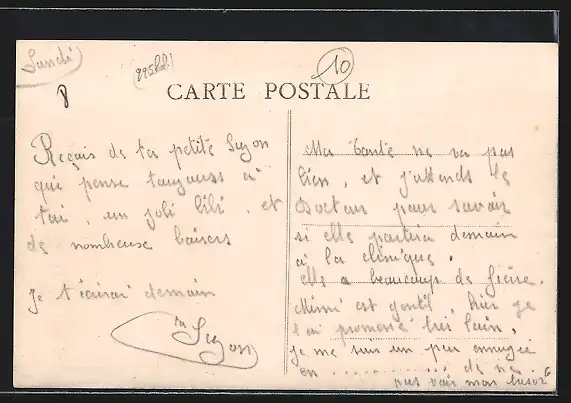 Lundi
10
8
CARTE POSTALE
Reçois de ta petite Suzon
qui pense toujours à
toi, un joli bibi, et
de nombreux baisers
Je t'écrirai demain
ta Suzon
Ma tante ne va pas
bien, et j'attends le
Docteur pour savoir
si elle partira demain
à la clinique.
Elle a beaucoup de fièvre.
Mimi est gentil, hier je
l'ai promené très loin.
Je me suis un peu ennuyée
en ............... de ne
pas voir mon trésor